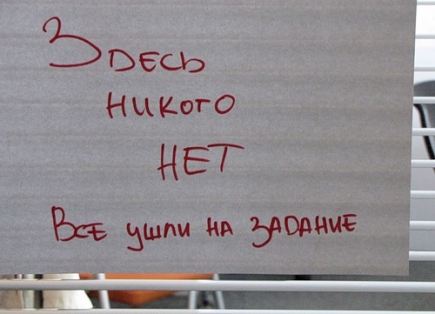 Здесь
никого
нет
Все ушли на задание